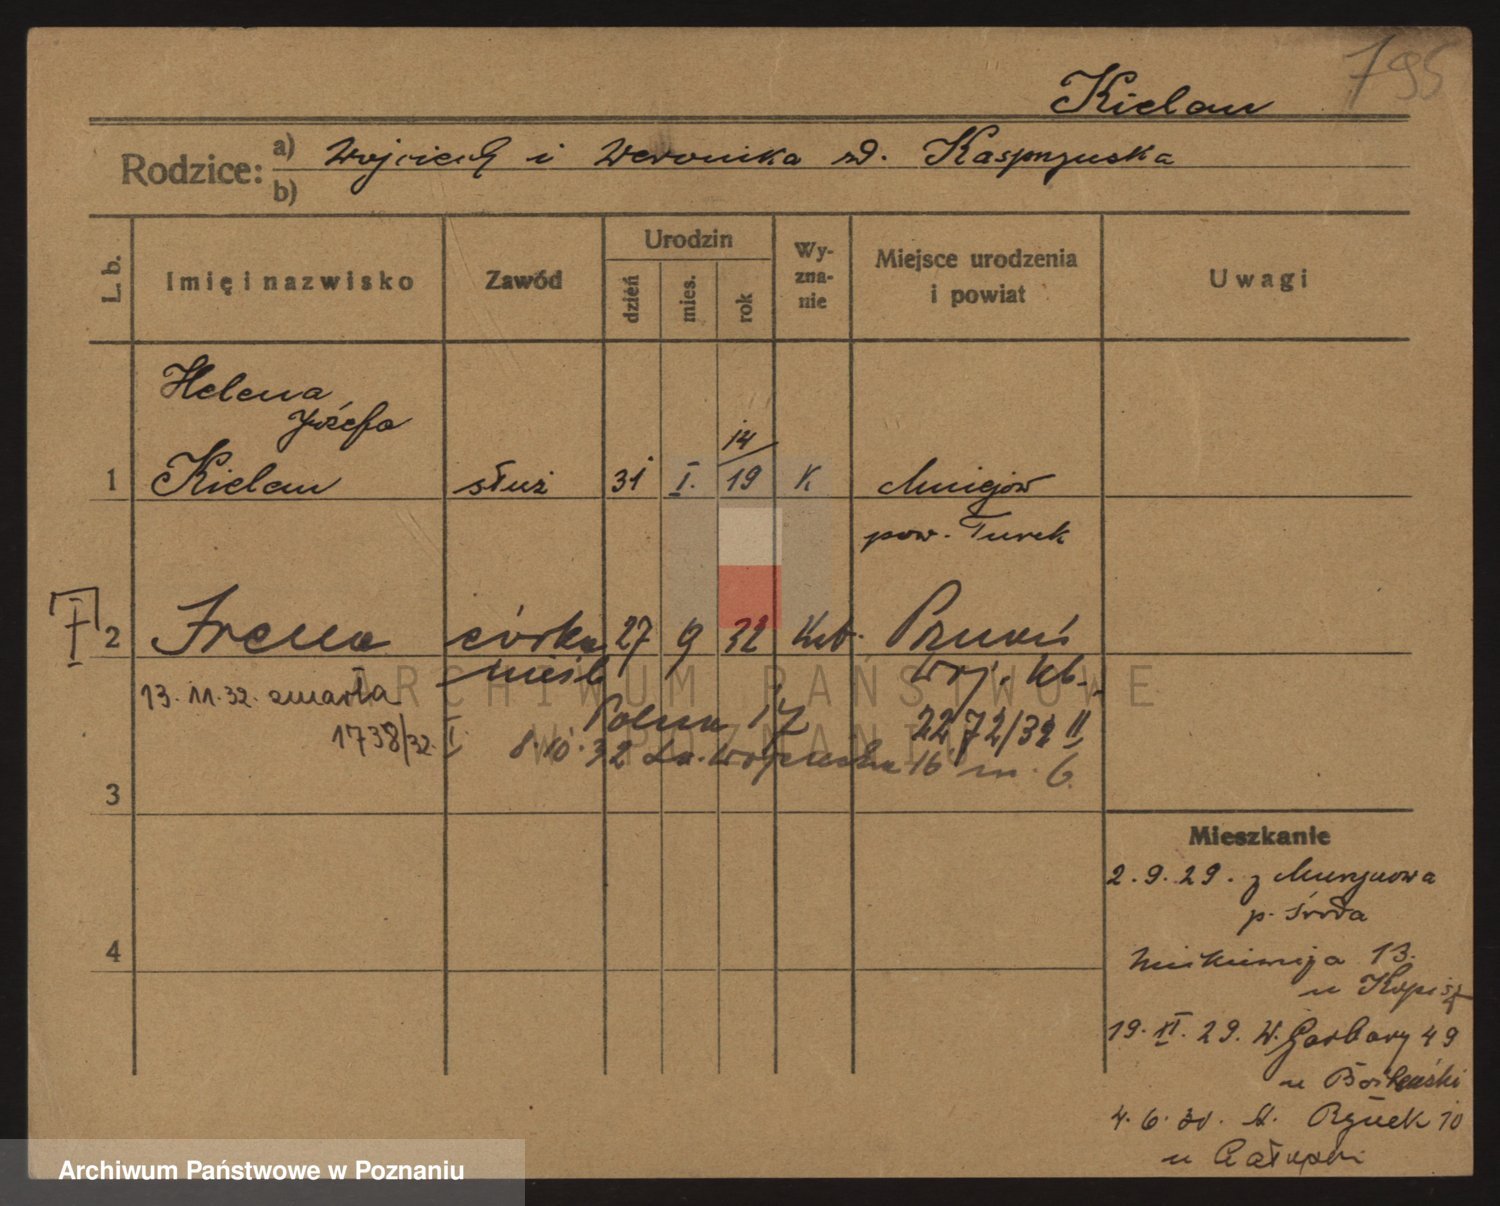 795
Kielan
Rodzice: a) Wojciech i Weronika zd. Kasprzycka
b)
L. b. Imię i nazwisko Zawód Urodzin dzień mies. rok Wy-zna-nie Miejsce urodzenia i powiat Uwagi
Helena
Józefa
14
1 Kielan służ 31 I. 19 K Mniejów
pow. Turek
I 2 Irena córka 27 9 32 kat. Poznań
nieśl woj. kb.
13. 11. 32. zmarła
1738/32. I Polna 17 2272/32 II
8.10.32 Wojciecha 16 m. 6
3
4
Mieszkanie
2. 9. 29. z Murzynowa
p. Środa
13.
u
19. XI. 29. W. Garbary 49
u
4. 6. 30. St. Rynek 10
u Gałupski
ARCHIWUM PAŃSTWOWE
W POZNANIU
Archiwum Państwowe w Poznaniu